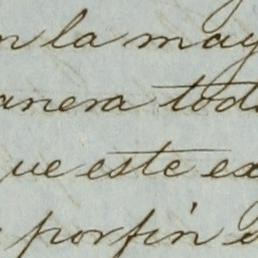 n la may
anera tod
ue este ex
porfín